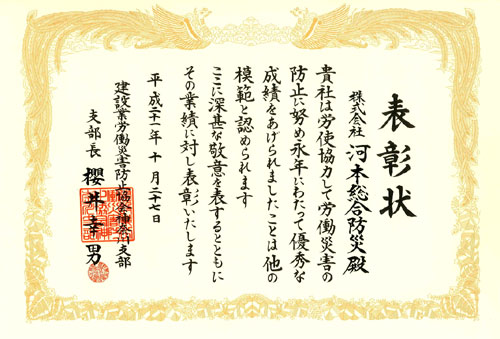 表彰状
株式会社 河本総合防災殿
貴社は労使協力して労働災害の
防止に努め永年にわたって優秀な
成績をあげられましたことは他の
模範と認められます
ここに深甚な敬意を表するとともに
その業績に対し表彰いたします
平成二十一年十月二十七日
建設業労働災害防止協会神奈川支部
支部長 櫻井幸男